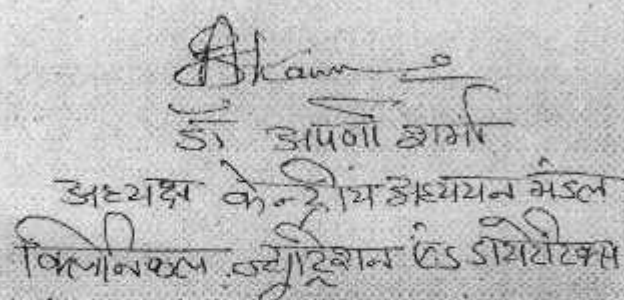 डॉ अपर्णा शर्मा
अध्यक्ष केन्द्रीय अध्ययन मंडल
क्लिनिकल न्यूट्रिशन एंड डायटेटिक्स